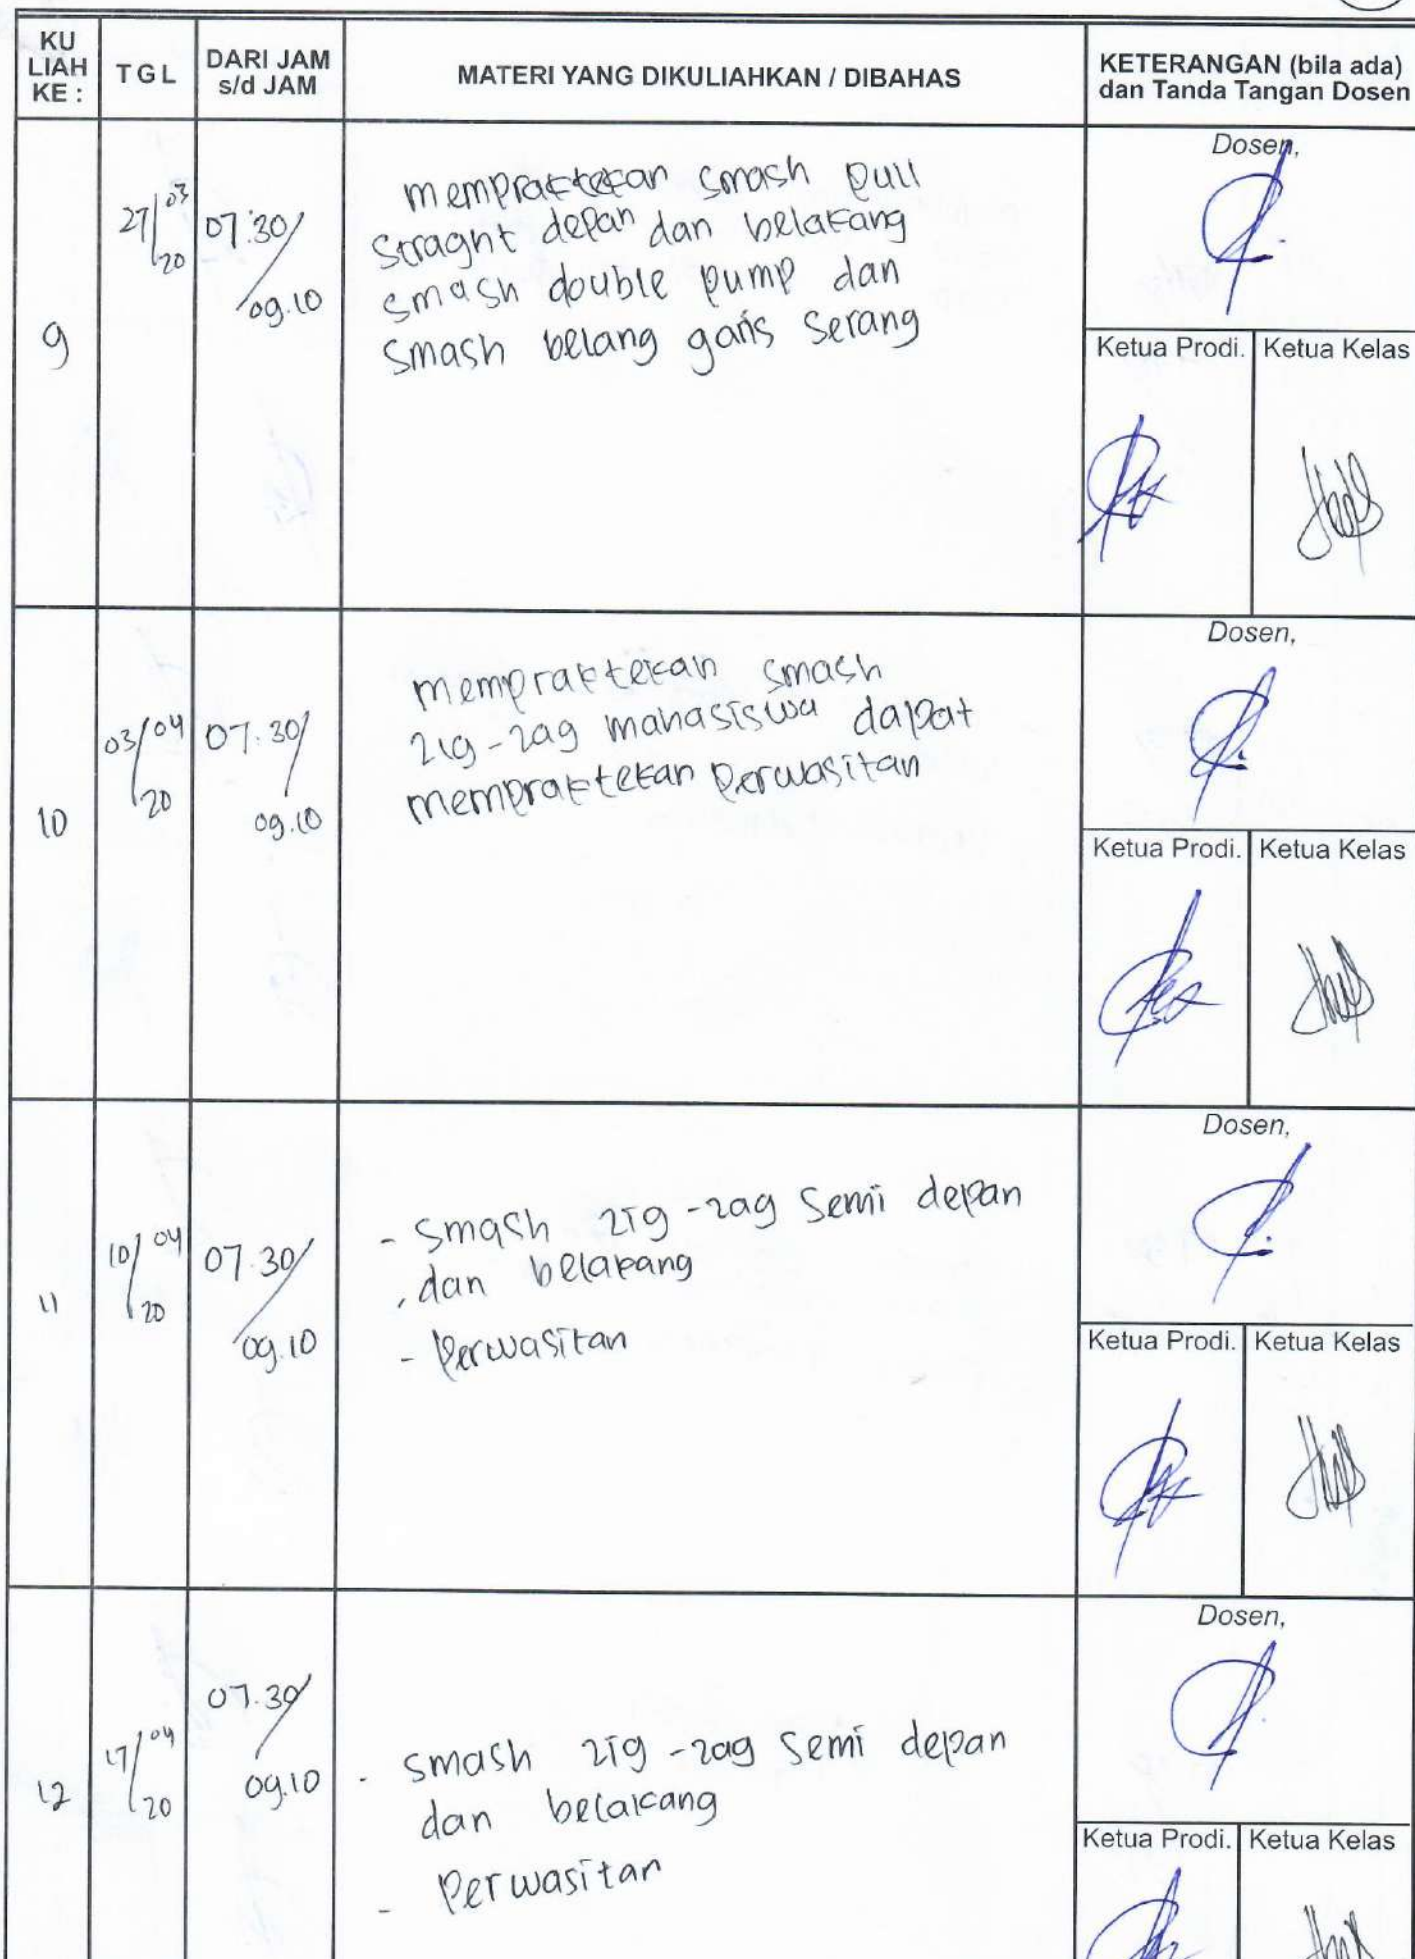 KU LIAH KE :
TGL
DARI JAM s/d JAM
MATERI YANG DIKULIAHKAN / DIBAHAS
KETERANGAN (bila ada)
dan Tanda Tangan Dosen
9
27/03/20
07.30/09.10
mempraktekan smash pull
straght depan dan belakang
smash double pump dan
smash belang garis serang
Dosen,
Ketua Prodi.
Ketua Kelas
10
03/04/20
07.30/09.10
mempraktekan smash
zig-zag mahasiswa dapat
mempraktekan perwasitan
Dosen,
Ketua Prodi.
Ketua Kelas
11
10/04/20
07.30/09.10
- Smash zig-zag Semi depan
dan belakang
- Perwasitan
Dosen,
Ketua Prodi.
Ketua Kelas
12
17/04/20
07.30/09.10
- smash zig-zag Semi depan
dan belakang
- Perwasitan
Dosen,
Ketua Prodi.
Ketua Kelas